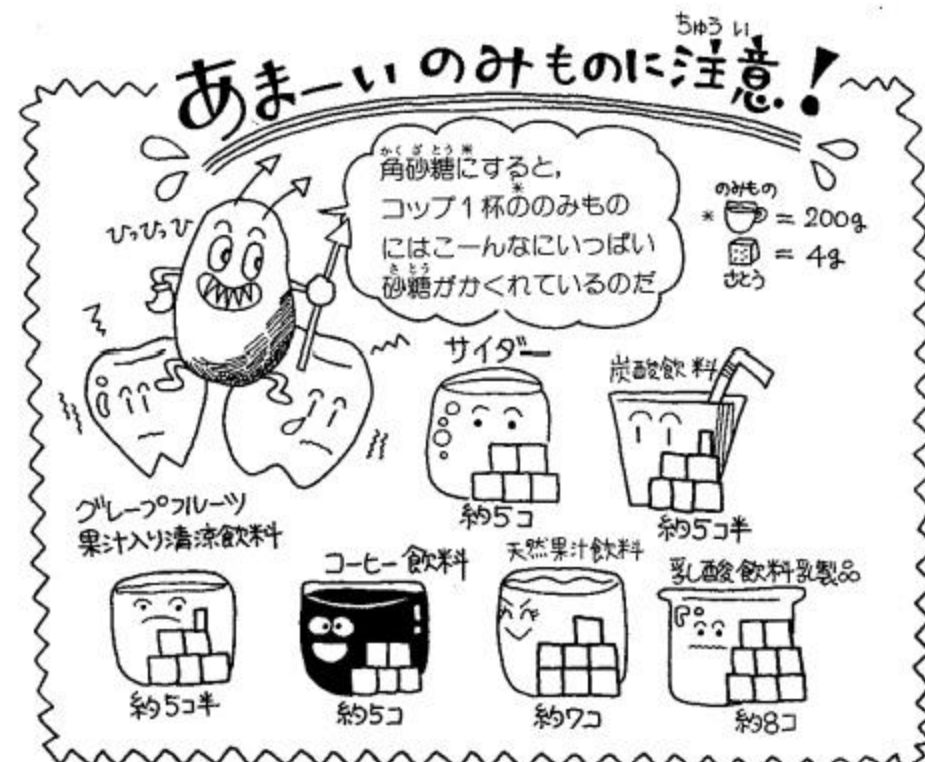 あまーいのみものに注意!
ちゅうい
かくざとう*
角砂糖にすると,
コップ1杯の*のみもの
にはこーんなにいっぱい
さとう
砂糖がかくれているのだ
のみもの
* = 200g
= 4g
さとう
ひっひっひ
サイダー
約5コ
炭酸飲料
約5コ半
グレープフルーツ
果汁入り清涼飲料
約5コ半
コーヒー飲料
約5コ
天然果汁飲料
約7コ
乳酸飲料乳製品
約8コ